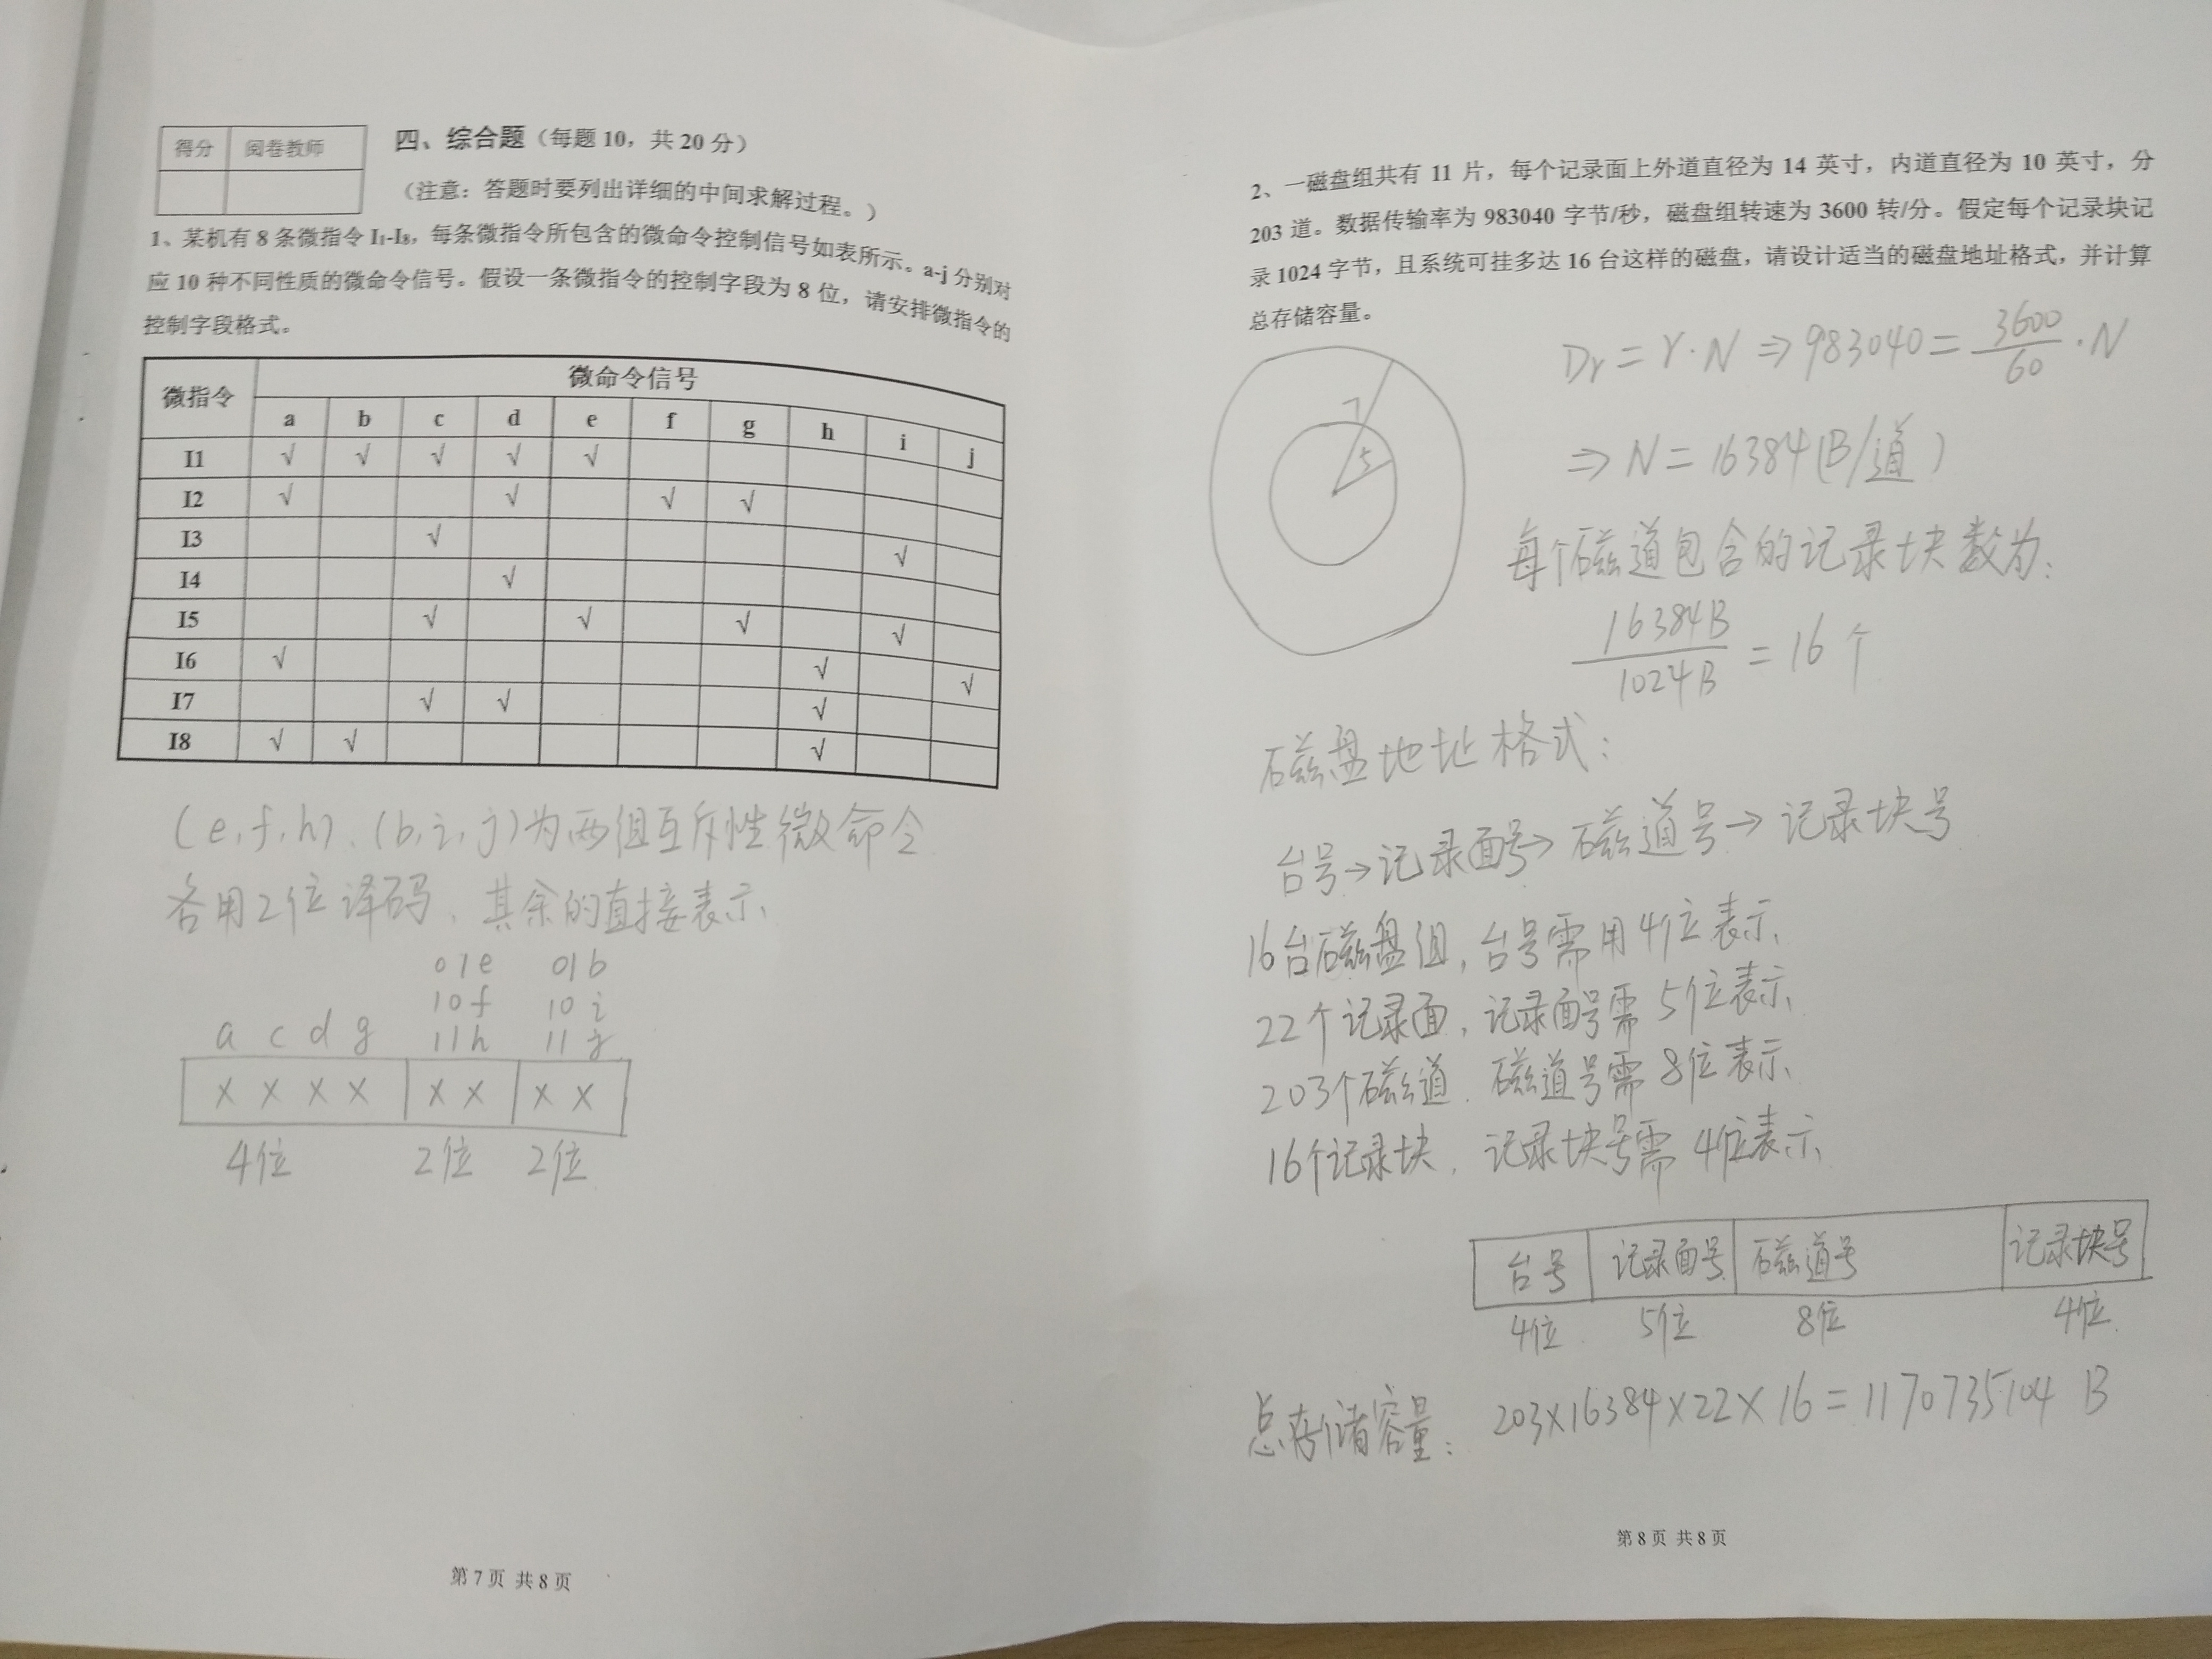 得分 阅卷教师
四、综合题（每题 10，共 20 分）
（注意：答题时要列出详细的中间求解过程。）
1、某机有 8 条微指令 I₁-I₈，每条微指令所包含的微命令控制信号如表所示。a-j 分别对
应 10 种不同性质的微命令信号。假设一条微指令的控制字段为 8 位，请安排微指令的
控制字段格式。
微指令 微命令信号
a b c d e f g h i j
I1 √ √ √ √ √
I2 √ √ √ √
I3 √ √
I4 √
I5 √ √ √ √
I6 √ √ √
I7 √ √ √
I8 √ √ √
(e,f,h)、(b,i,j)为两组互斥性微命令
各用2位译码，其余的直接表示、
01e 01b
10f 10i
a c d g 11h 11j
× × × × × × × ×
4位 2位 2位
第 7 页 共 8 页
2、一磁盘组共有 11 片，每个记录面上外道直径为 14 英寸，内道直径为 10 英寸，分
203 道。数据传输率为 983040 字节/秒，磁盘组转速为 3600 转/分。假定每个记录块记
录 1024 字节，且系统可挂多达 16 台这样的磁盘，请设计适当的磁盘地址格式，并计算
总存储容量。
Dr = r·N ⇒ 983040 = 3600/60 ·N
7
5
⇒ N = 16384(B/道)
每个磁道包含的记录块数为：
16384B/1024B = 16 个
磁盘地址格式：
台号→记录面号→磁道号→记录块号
16台磁盘组，台号需用4位表示、
22个记录面，记录面号需 5位表示、
203个磁道．磁道号需 8位表示、
16个记录块，记录块号需 4位表示、
台号 记录面号 磁道号 记录块号
4位 5位 8位 4位
总存储容量： 203×16384×22×16=1170735104 B
第 8 页 共 8 页